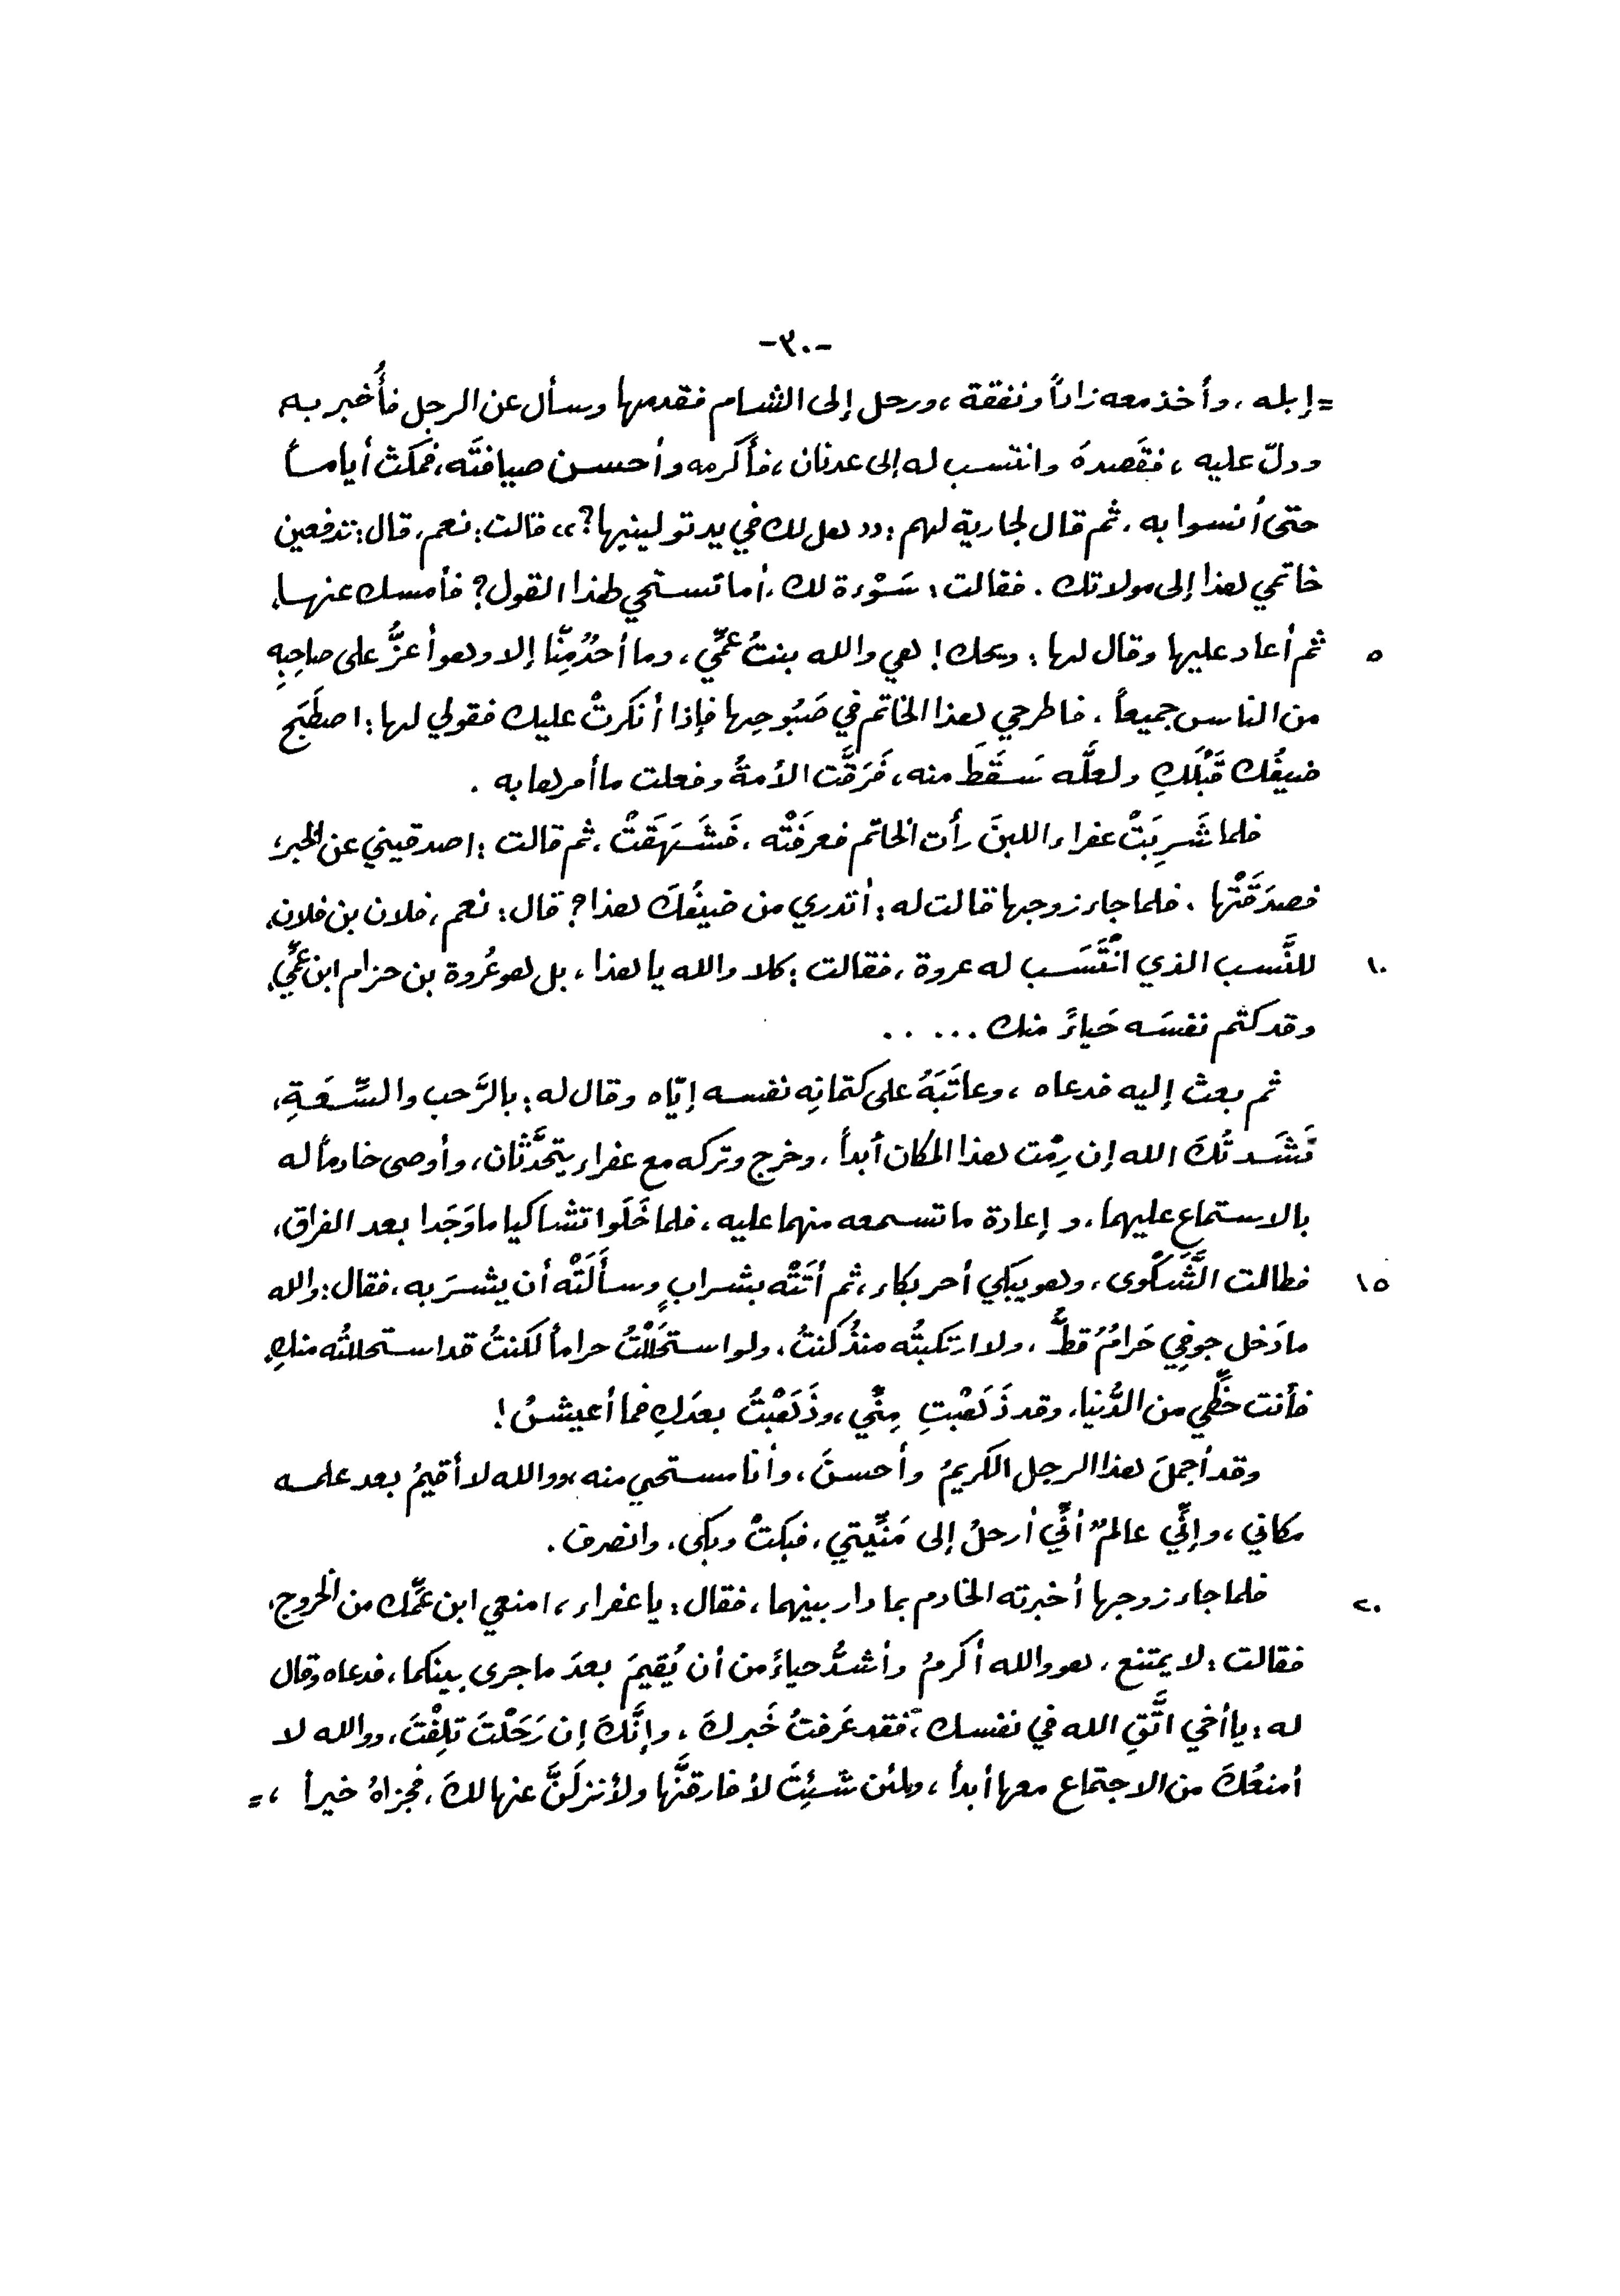 -٣٠-
= إبله ، وأخذ معه زاداً ونفقة ، ورحل إلى الشام فقدمها وسأل عن الرجل فأُخبر به
ودلّ عليه ، فقَصدهَ وانتسب له إلى عدنان ، فأكرمه وأحسن ضيافتَه ، فمكث أياماً
حتى أنسوا به ، ثم قال لجارية لهم : (( هل لك في يد تولينيها ؟ )) قالت : نعم ، قال : تدفعين
خاتمي هذا إلى مولاتك . فقالت : سَوْءة لك ، أما تستحي لهذا القول ؟ فأمسك عنها ،
٥ ثم أعاد عليها وقال لها : ويحك ! هي والله بنتُ عَمِّي ، وما أحدُ مِنَّا إلا وهو أعزُّ على صاحِبِهِ
من الناس جميعاً ، فاطرحي هذا الخاتم في صَبُوحِها فإذا أنكرتْ عليك فقولي لها : اصطَبَح
ضيفُك قَبْلَكِ ولعلَّه سَقَطَ منه ، فَرَقَّت الأمةُ وفعلت ما أمرها به .
فلما شَرِبَتْ عفراء اللبنَ رأت الخاتم فعرفَتْه ، فَشَهَقَتْ ، ثم قالت : اصدقيني عن الخبر ،
فصدَقَتْها . فلما جاء زوجها قالت له : أتدري من ضيفُكَ هذا ؟ قال : نعم ، فلان بن فلان ،
١٠ للنَّسب الذي انْتَسَب له عروة ، فقالت : كلا والله يا هذا ، بل هو عُروة بن حزام ابن عَمِّي ،
وقد كتم نفسَه حَياءً منك .....
ثم بعث إليه فدعاه ، وعاتَبَهُ على كتمانِه نفسه إيّاه وقال له : بالرَّحب والسَّعَةِ ،
نَشَدتُكَ الله إن رِمْت هذا المكان أبداً ، وخرج وتركه مع عفراء يتحَدَّثان ، وأوصى خادماً له
بالاستماع عليهما ، و إعادة ما تسمعه منهما عليه ، فلما خَلَوا تشاكيا ما وَجَدا بعد الفراق ،
١٥ فطالت الشَّكْوى ، وهو يبكي أحر بكاء ، ثم أتَتْه بشرابٍ وسأَلَتْه أن يشرَبه ، فقال : والله
ما دَخل جوفِي حَرامُ قطُّ ، ولا ارتكبتُه منذُ كنتُ ، ولو استحَلَلْتُ حراماً لكنتُ قد استحللتُه منكِ ،
فأنت حظِّي من الدُّنيا ، وقد ذَهَبْتِ مِنِّي ، وذَهَبْتُ بعدَكِ فما أعيشُ !
وقد أجملَ هذا الرجل الكريمُ وأحسنَ ، وأنا مستحي منه ، ووالله لا أقيمُ بعد علمه
مكاني ، وإنِّي عالمٌ أنِّي أرحلُ إلى مَنِّيتي ، فبكتْ وبكى ، وانصرف .
٢٠ فلما جاء زوجها أخبرته الخادم بما دار بينهما ، فقال : يا عفراء ، امنعي ابن عَمِّك من الخروج ،
فقالت : لا يمتنع ، هو والله أكرمُ وأشدُّ حياءً من أن يُقيمَ بعدَ ما جرى بينكما ، فدعاه وقال
له : يا أخي اتَّقِ الله في نفسك ، فقد عَرفتُ خَبركَ ، وإنَّكَ إن رَحَلْتَ تلِفْتَ ، ووالله لا
أمنعُكَ من الاجتماع معها أبداً ، ولئن شئِتَ لأفارقنَّها ولأنزلَنَّ عنها لكَ ، فجزاهُ خيراً ، =